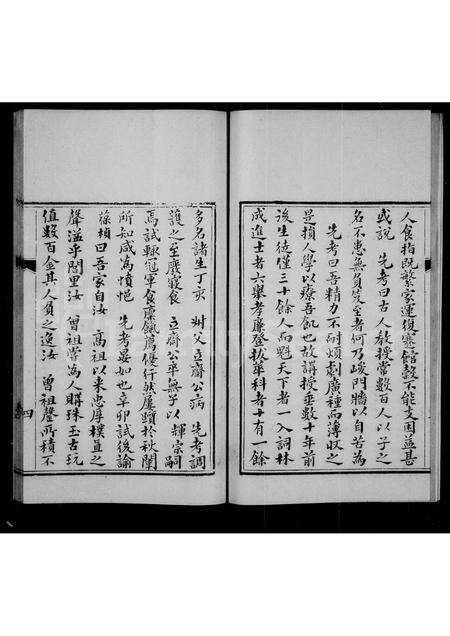 人食指既繁家運復塞館穀不能支困益甚
或說　先考曰古人教授常數百人以子之
名不患無負笈至者何乃峻門牆以自苦為
先考曰吾精力不耐煩劇廣種而薄收之
是損人學以療吾飢也故講授垂數十年前
後生徒僅三十餘人而魁天下者一入詞林
成進士者六舉孝廉登拔萃科者十有一餘
多名諸生丁亥　叔父立齋公病　先考調
護之至廢寢食　立齋公卒無子以　輝宗嗣
焉試輒冠軍食廩餼篤優行然屢躓於秋闈
所知咸為憤悒　先考晏如也辛卯試後諭
葆楨曰吾家自汝　高祖以來忠厚樸直之
聲溢乎閭里汝　曾祖嘗為人購珠玉古玩
值數百金其人負之逸汝　曾祖罄所積不
四